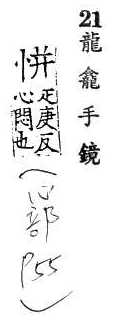 21 龍龕手鏡
恲 疋庚反心悶也(心部 P55)